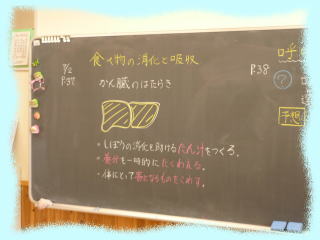 食べ物の消化と吸収
9/2
P.37
かん臓のはたらき
・しぼうの消化を助けるたん汁をつくる。
・養分を一時的にたくわえる。
・体にとって害となるものをこわす。
呼
P.38
?
予想